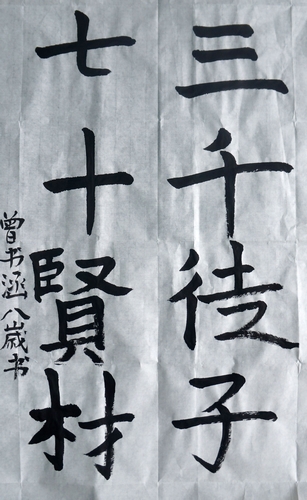 三千徒子
七十賢材
曾书涵八歲书